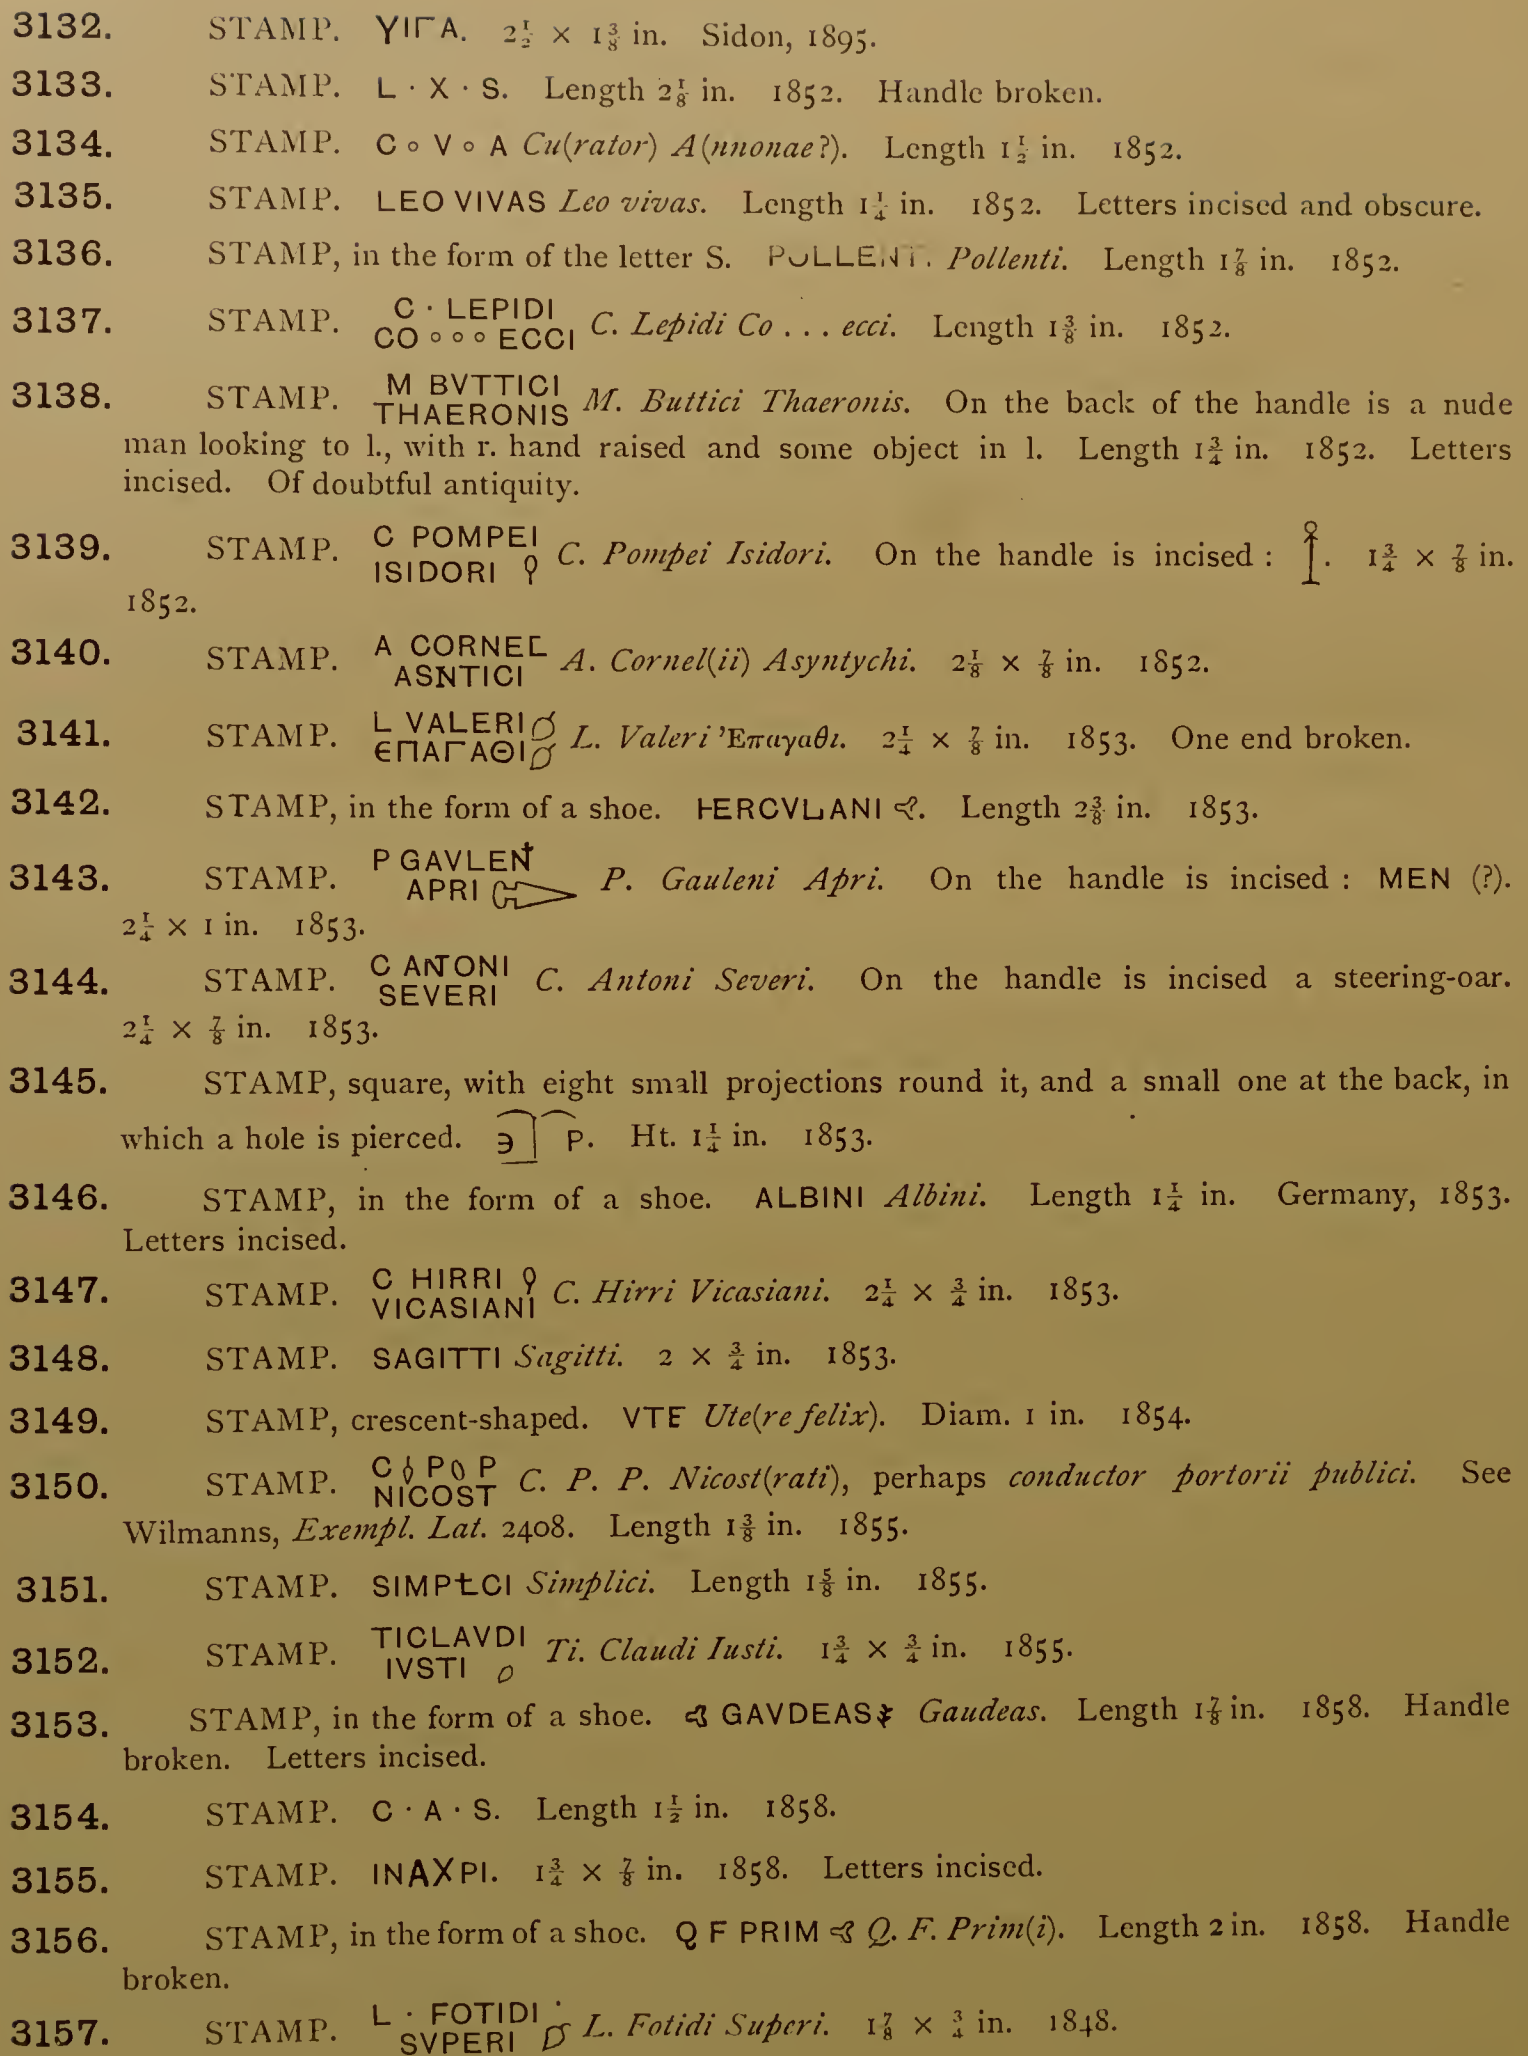 3132. STAMP. ΥΙΓΑ. 2½ × 1⅜ in. Sidon, 1895.
3133. STAMP. L · X · S. Length 2⅛ in. 1852. Handle broken.
3134. STAMP. C ∘ V ∘ A Cu(rator) A(nnonae?). Length 1½ in. 1852.
3135. STAMP. LEO VIVAS Leo vivas. Length 1¼ in. 1852. Letters incised and obscure.
3136. STAMP, in the form of the letter S. POLLENTI. Pollenti. Length 1⅞ in. 1852.
3137. STAMP. C · LEPIDI
CO ∘ ∘ ∘ ECCI C. Lepidi Co . . . ecci. Length 1⅜ in. 1852.
3138. STAMP. M BVTTICI
THAERONIS M. Buttici Thaeronis. On the back of the handle is a nude
man looking to l., with r. hand raised and some object in l. Length 1¾ in. 1852. Letters
incised. Of doubtful antiquity.
3139. STAMP. C POMPEI
ISIDORI C. Pompei Isidori. On the handle is incised : . 1¾ × ⅞ in.
1852.
3140. STAMP. A CORNEL
ASNTICI A. Cornel(ii) Asyntychi. 2⅛ × ⅞ in. 1852.
3141. STAMP. L VALERI
ЄΠΑΓΑΘΙ L. Valeri Ἐπαγαθι. 2¼ × ⅞ in. 1853. One end broken.
3142. STAMP, in the form of a shoe. HERCVLANI. Length 2⅜ in. 1853.
3143. STAMP. P GAVLENI
APRI P. Gauleni Apri. On the handle is incised : MEN (?).
2¼ × 1 in. 1853.
3144. STAMP. C ANTONI
SEVERI C. Antoni Severi. On the handle is incised a steering-oar.
2¼ × ⅞ in. 1853.
3145. STAMP, square, with eight small projections round it, and a small one at the back, in
which a hole is pierced. P. Ht. 1¼ in. 1853.
3146. STAMP, in the form of a shoe. ALBINI Albini. Length 1¼ in. Germany, 1853.
Letters incised.
3147. STAMP. C HIRRI
VICASIANI C. Hirri Vicasiani. 2¼ × ¾ in. 1853.
3148. STAMP. SAGITTI Sagitti. 2 × ¾ in. 1853.
3149. STAMP, crescent-shaped. VTE Ute(re felix). Diam. 1 in. 1854.
3150. STAMP. C P P
NICOST C. P. P. Nicost(rati), perhaps conductor portorii publici. See
Wilmanns, Exempl. Lat. 2408. Length 1⅜ in. 1855.
3151. STAMP. SIMPLCI Simplici. Length 1⅝ in. 1855.
3152. STAMP. TICLAVDI
IVSTI Ti. Claudi Iusti. 1¾ × ¾ in. 1855.
3153. STAMP, in the form of a shoe. GAVDEAS Gaudeas. Length 1⅞ in. 1858. Handle
broken. Letters incised.
3154. STAMP. C · A · S. Length 1½ in. 1858.
3155. STAMP. INAXPI. 1¾ × ⅞ in. 1858. Letters incised.
3156. STAMP, in the form of a shoe. Q F PRIM Q. F. Prim(i). Length 2 in. 1858. Handle
broken.
3157. STAMP. L · FOTIDI ·
SVPERI L. Fotidi Superi. 1⅞ × ¾ in. 1848.